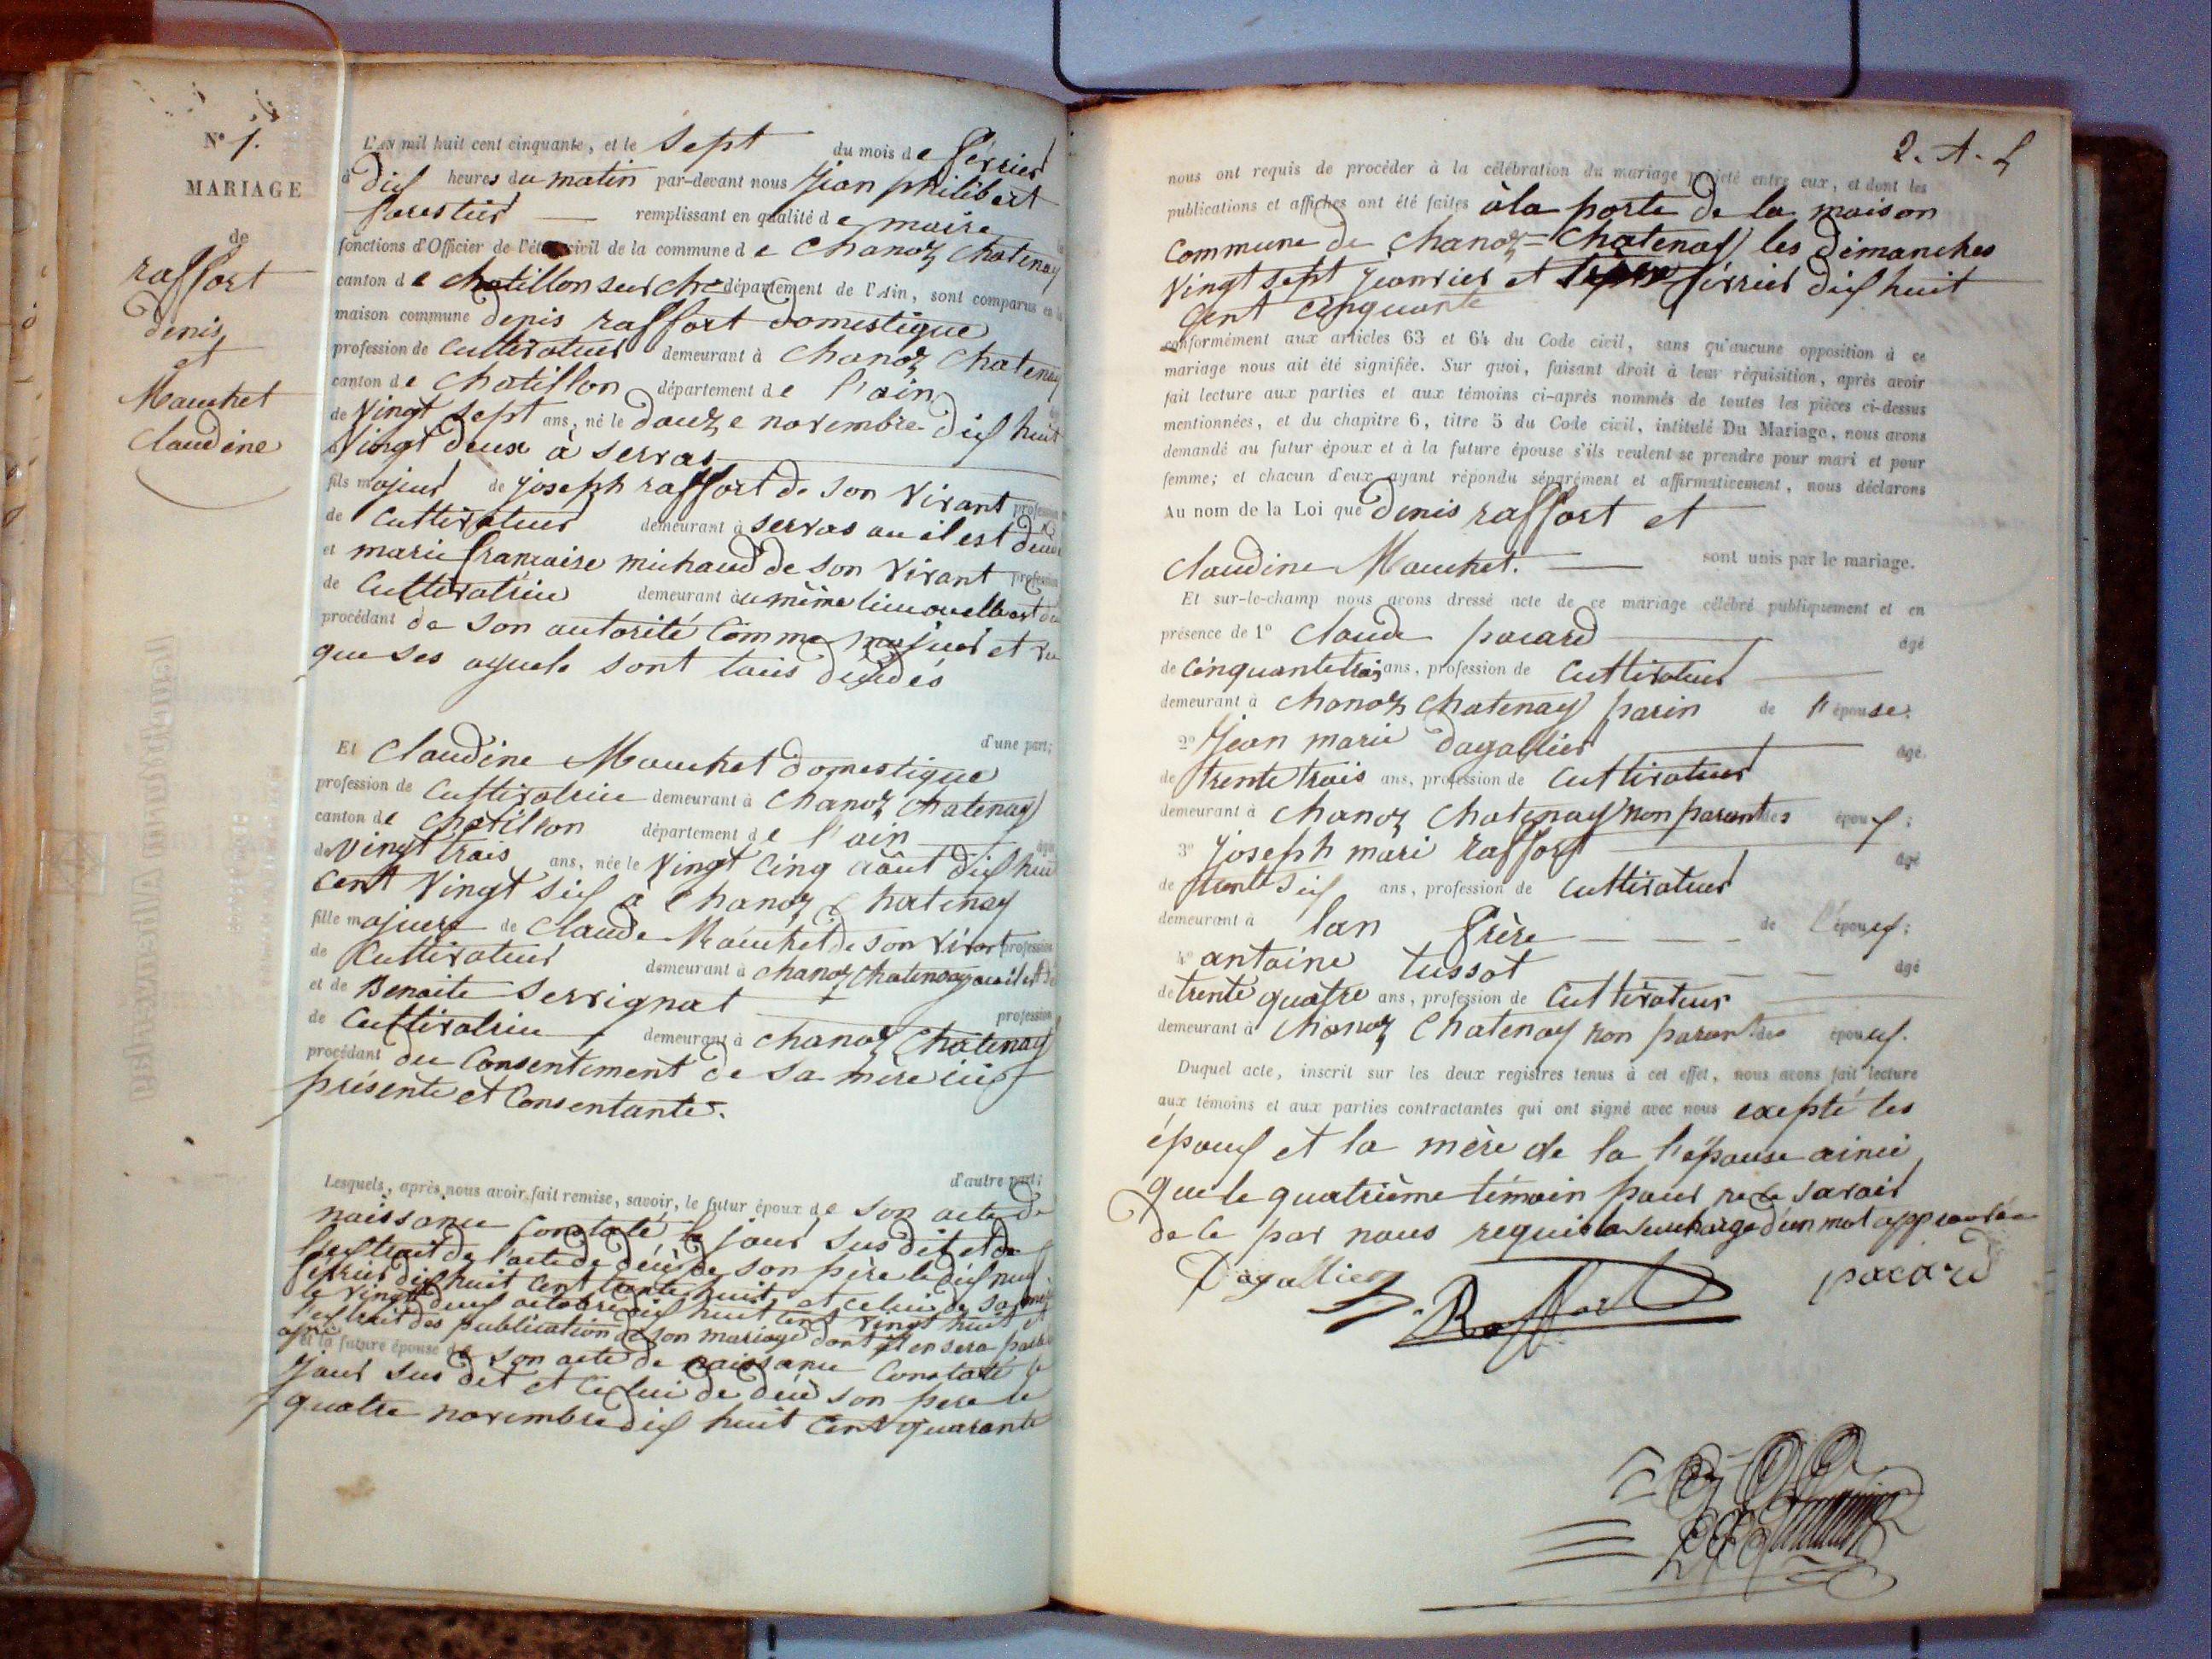 N° 1.
MARIAGE
de
raffort
denis
et
Mouchet
Claudine
L'AN mil huit cent cinquante, et le sept du mois de février
à dix heures du matin par-devant nous jean philibert
forestier remplissant en qualité de maire
fonctions d'Officier de l'état civil de la commune de chanoz chatenay
canton de chatillon sur ch département de l'Ain, sont comparus en la
maison commune denis raffort domestique
profession de cultivateur demeurant à chanoz chatenay
canton de chatillon département de l'ain
de vingt sept ans, né le douze novembre dix huit
vingt deux à servas
fils majeur de joseph raffort de son vivant profession
de cultivateur demeurant à servas ou il est
et marie francoise michaud de son vivant profession
de cultivatrice demeurant au même lieu ou elle est
procédant de son autorité comme majeur et vu
que ses ayeule sont touis dédés
d'une part;
Et Claudine Mouchet domestique
profession de cultivatrice demeurant à chanoz chatenay
canton de chatillon département de l'ain
de vingt trois ans, née le vingt cinq août dix huit
cent vingt six à chanoz chatenay
fille majeure de Claude Mouchet de son vivant profession
de cultivateur demeurant à chanoz chatenay ou il est
et de Benoite Serrignat profession
de cultivatrice demeurant à chanoz chatenay
procédant du consentement de sa mère ici
présente et consentante.
d'autre part;
Lesquels, après nous avoir fait remise, savoir, le futur époux de son acte de
naissance constaté le jour sus dit et de
l'extrait de l'acte de décè de son père le dix neuf
février dix huit cent trente huit et celui de sa mère
le vingt deux octobre dix huit cent vingt huit et
l'extrait des publication de son mariage dont il en sera parlé
et la future épouse de son acte de naissance constaté le
jour sus dit et celui de décè son pere le
quatre novembre dix huit cent quarante
2. A. L
nous ont requis de procéder à la célébration du mariage projeté entre eux, et dont les
publications et affiches ont été faites à la porte de la maison
commune de chanoz = chatenay les dimanches
vingt sept janvier et février dix huit
cent cinquante
conformément aux articles 63 et 64 du Code civil, sans qu'aucune opposition à ce
mariage nous ait été signifiée. Sur quoi, faisant droit à leur réquisition, après avoir
fait lecture aux parties et aux témoins ci-après nommés de toutes les pièces ci-dessus
mentionnées, et du chapitre 6, titre 5 du Code civil, intitulé Du Mariage, nous avons
demandé au futur époux et à la future épouse s'ils veulent se prendre pour mari et pour
femme; et chacun d'eux ayant répondu séparément et affirmativement, nous déclarons
Au nom de la Loi que denis raffort et
Claudine Mouchet. sont unis par le mariage.
Et sur-le-champ nous avons dressé acte de ce mariage célébré publiquement et en
présence de 1° Claude pacard âgé
de cinquante trois ans, profession de cultivateur
demeurant à chanoz chatenay parin de l'épouse.
2° Jean marie dagallier âgé
de trente trois ans, profession de cultivateur
demeurant à chanoz chatenay non parent des époux;
3° joseph mari raffort âgé
de trente six ans, profession de cultivateur
demeurant à lan frère de l'époux;
4° antoine tussot âgé
de trente quatre ans, profession de cultivateur
demeurant à chanoz chatenay non parent des époux.
Duquel acte, inscrit sur les deux registres tenus à cet effet, nous avons fait lecture
aux témoins et aux parties contractantes qui ont signé avec nous excepté les
époux et la mère de la l'épouse ainsi
que le quatrième témoin pour ne le savoir
de ce par nous requis la surcharge d'un mot approuvée
Dagallier Raffort pacard